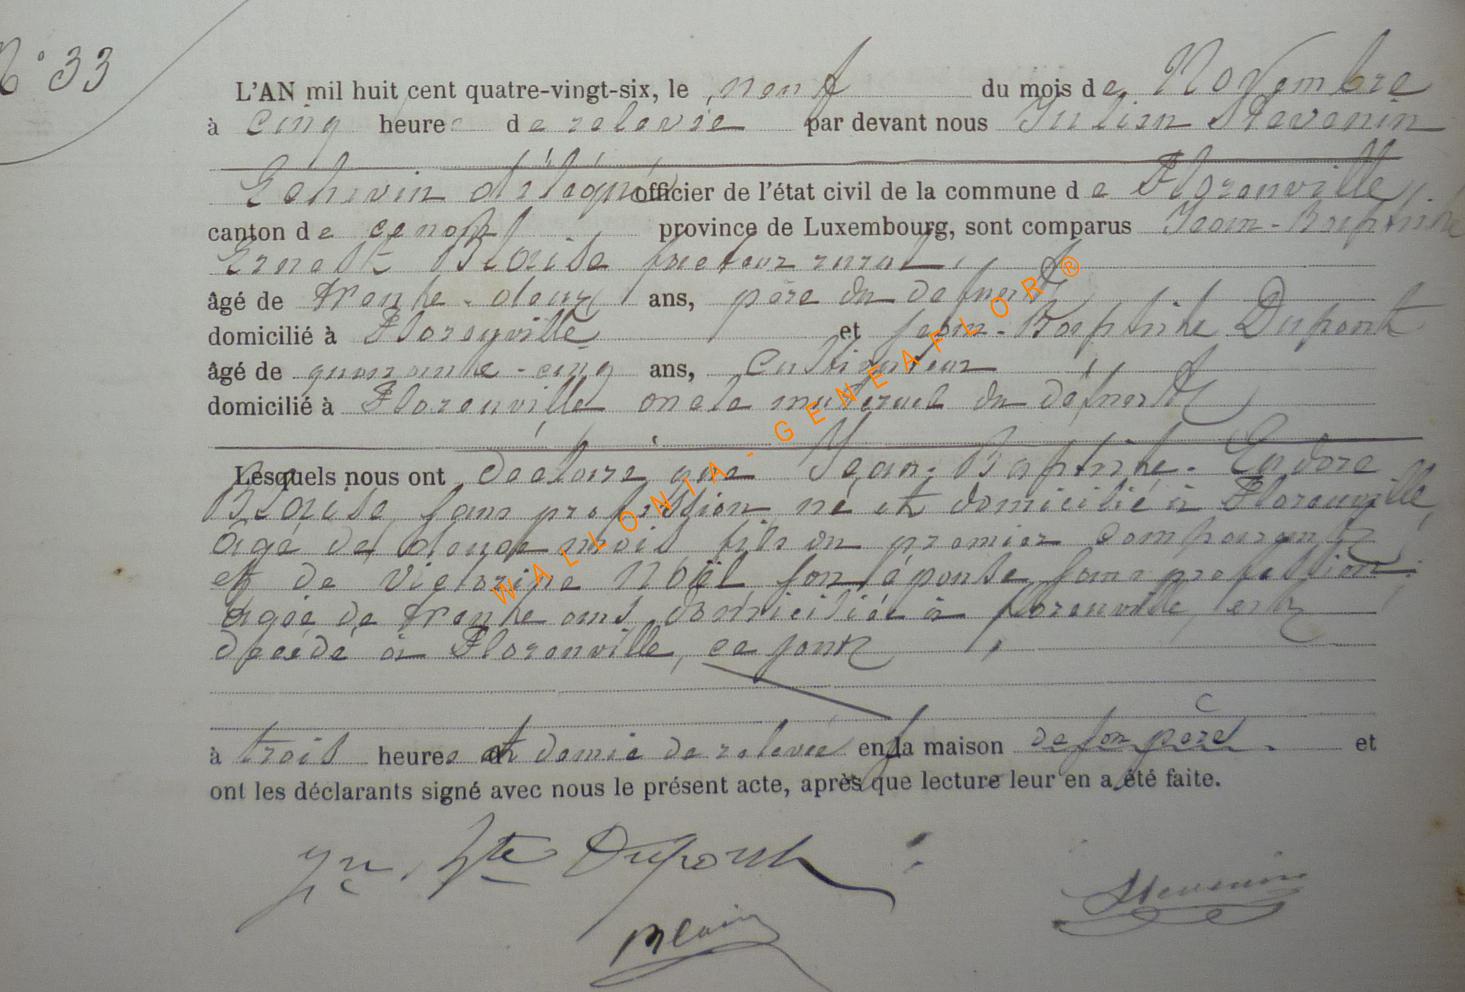 N° 33
L'AN mil huit cent quatre-vingt-six, le neuf du mois de Novembre
à cinq heures de relevée par devant nous Julien Stevenin
Echevin délégué officier de l'état civil de la commune de Florenville
canton de province de Luxembourg, sont comparus Jean-Baptiste
Ernest Blaise facteur rural,
âgé de trente-deux ans, père du défunt
domicilié à Florenville et Jean-Baptiste Dupont
âgé de quarante-cinq ans, cultivateur
domicilié à Florenville oncle maternel du défunt
Lesquels nous ont déclaré que Jean-Baptiste-Eudore
Blaise, sans profession né et domicilié à Florenville,
âgé de douze mois fils du premier comparant
et de Victorine Noël son épouse, sans profession
âgée de trente ans, domiciliée à Florenville, est
décédé à Florenville, ce jour
à trois heures et demie de relevée en la maison de son père. et
ont les déclarants signé avec nous le présent acte, après que lecture leur en a été faite.
Jn. Bte Dupont
Stevenin
Blaise
WALLONIA - GENEAFLOR®